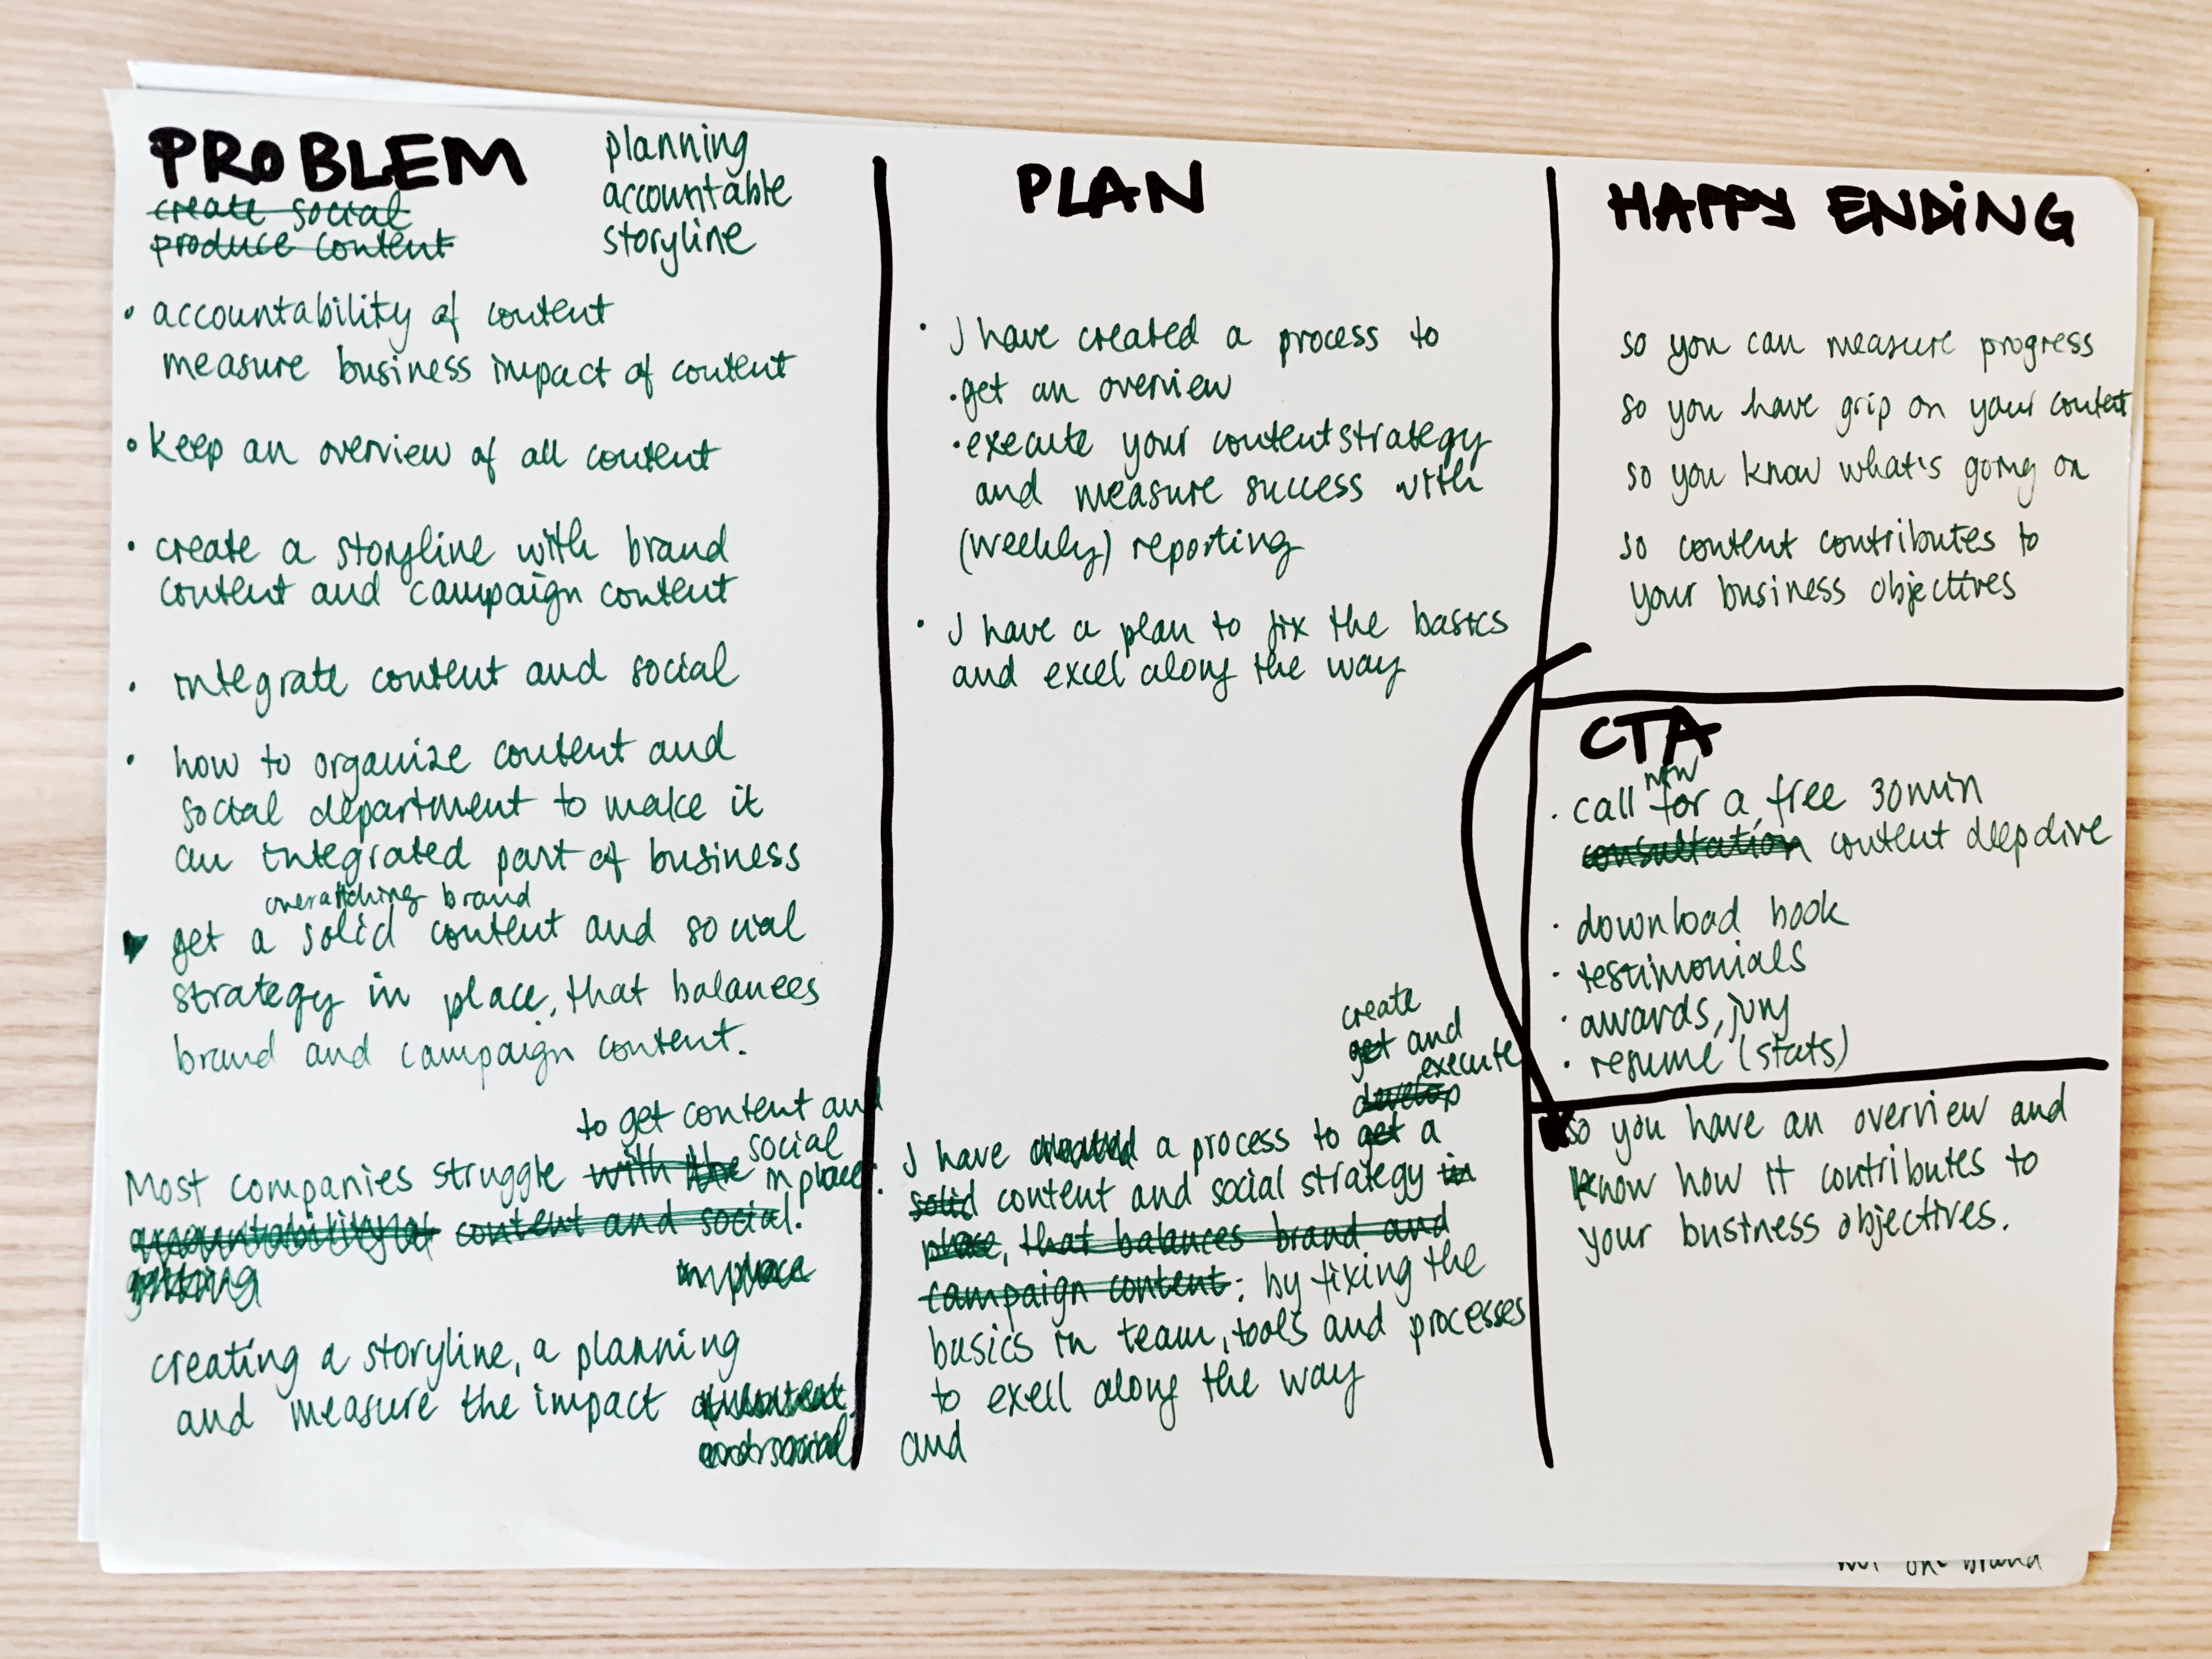 PROBLEM
create social
produce content
planning
accountable
storyline
• accountability of content
measure business impact of content
• keep an overview of all content
• create a storyline with brand
content and campaign content
• integrate content and social
• how to organize content and
social department to make it
an integrated part of business
overatching brand
get a solid content and social
strategy in place, that balances
brand and campaign content.
to get content and
social
Most companies struggle with the in place:
accountability of content and social.
getting
in place
creating a storyline, a planning
and measure the impact
and social
PLAN
• I have created a process to
• get an overview
• execute your contentstrategy
and measure success with
(weekly) reporting
• I have a plan to fix the basics
and excel along the way
create
get and
execute
develop
I have created a process to get a
solid content and social strategy in
place, that balances brand and
campaign content; by fixing the
basics in team, tools and processes
to exell along the way
and
HAPPY ENDING
so you can measure progress
so you have grip on your content
so you know what's going on
so content contributes to
your business objectives
CTA
now
• call for a free 30min
consultation content deepdive
• download book
• testimonials
• awards, jury
• resume (stats)
so you have an overview and
know how it contributes to
your business objectives.
brand